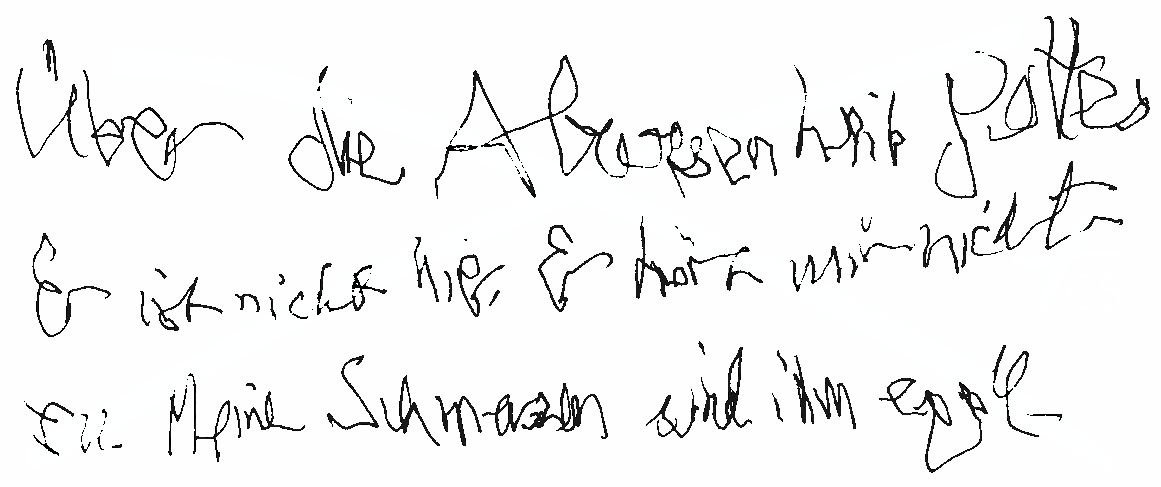 Über die Abwesenheit Gottes
Er ist nicht hier, Er hört mir nicht
zu. Meine Schmerzen sind ihm egal